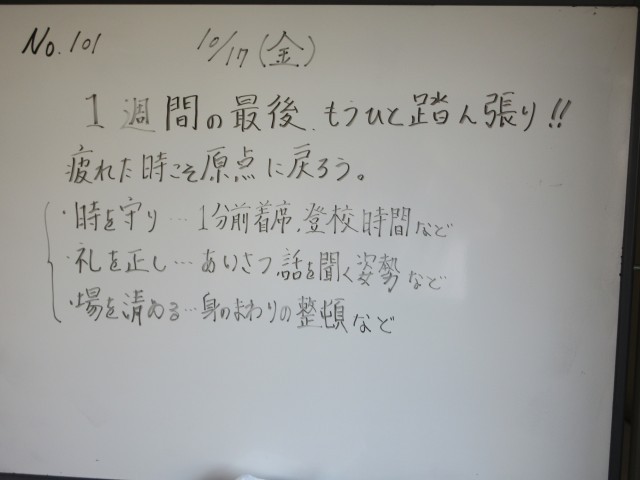 No.101 10/17(金)
1週間の最後、もうひと踏ん張り!!
疲れた時こそ原点に戻ろう。
・時を守り…1分前着席、登校時間など
・礼を正し…あいさつ、話を聞く姿勢など
・場を清める…身のまわりの整頓など